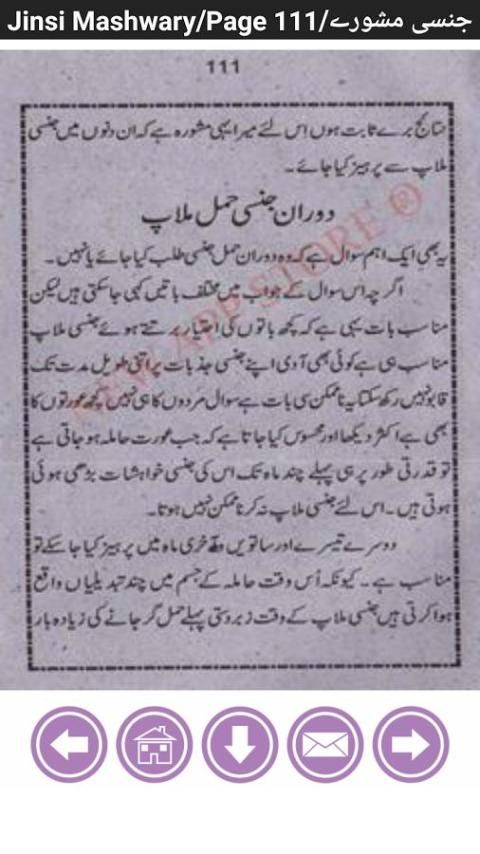 Jinsi Mashwary/Page 111/جنسی مشورے
111
نتائج برے ثابت ہوں اس لئے میرا یہی مشورہ ہے کہ ان دنوں میں جنسی
ملاپ سے پرہیز کیا جائے۔
دوران جنسی حمل ملاپ
یہ بھی ایک اہم سوال ہے کہ وہ دوران حمل جنسی طلب کیا جائے یا نہیں۔
اگرچہ اس سوال کے جواب میں مختلف باتیں کہی جا سکتی ہیں لیکن
مناسب بات یہی ہے کہ کچھ باتوں کی احتیار برتتے ہوئے جنسی ملاپ
مناسب ہی ہے کوئی بھی آدمی اپنے جنسی جذبات پر اتنی طویل مدت تک
قابو نہیں رکھ سکتا یہ ناممکن سی بات ہے سوال مردوں کا ہی نہیں کچھ عورتوں کا
بھی ہے اکثر دیکھا اور محسوس کیا جاتا ہے کہ جب عورت حاملہ ہو جاتی ہے
تو قدرتی طور پر ہی پہلے چند ماہ تک اس کی جنسی خواہشات بڑھی ہوئی
ہوتی ہیں۔ اس لئے جنسی ملاپ نہ کرنا ممکن نہیں ہوتا۔
دوسرے تیسرے اور ساتویں ماہ میں پرہیز کیا جا سکے تو
مناسب ہے۔ کیونکہ اُس وقت حاملہ کے جسم میں چند تبدیلیاں واقع
ہوا کرتی ہیں جنسی ملاپ کے وقت زبردستی پہلے حمل گر جانے کی زیادہ بار
NEW APP STORE ®